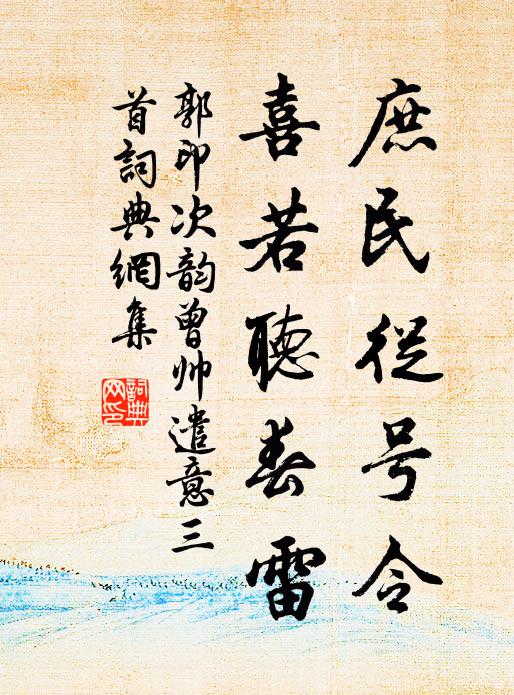 庶民從号令
喜若聽春雷
郭印次韵曾帅遣意三
首詞典網集
詞典
网印